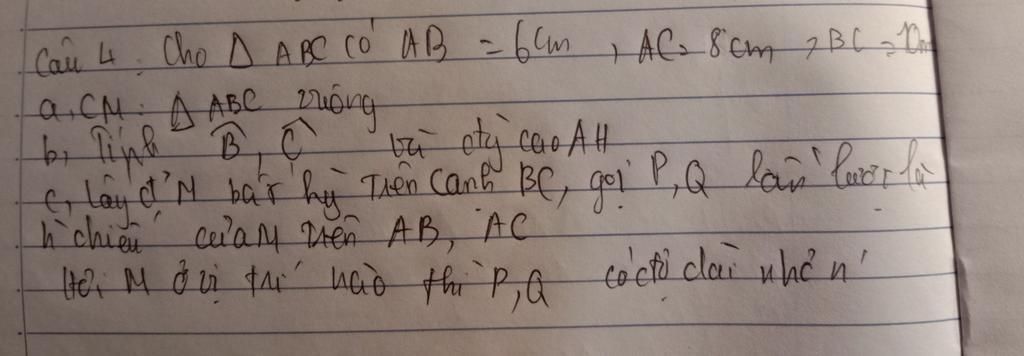 Câu 4: Cho Δ ABC có AB = 6cm, AC = 8cm, BC = 10cm
a, CM: Δ ABC vuông
b, Tính B̂, Ĉ và đg cao AH
c, lấy đ' M bất kỳ trên cạnh BC, gọi P, Q lần lượt là
h chiếu của M trên AB, AC
Hỏi M ở vị trí nào thì P, Q có độ dài nhỏ n'